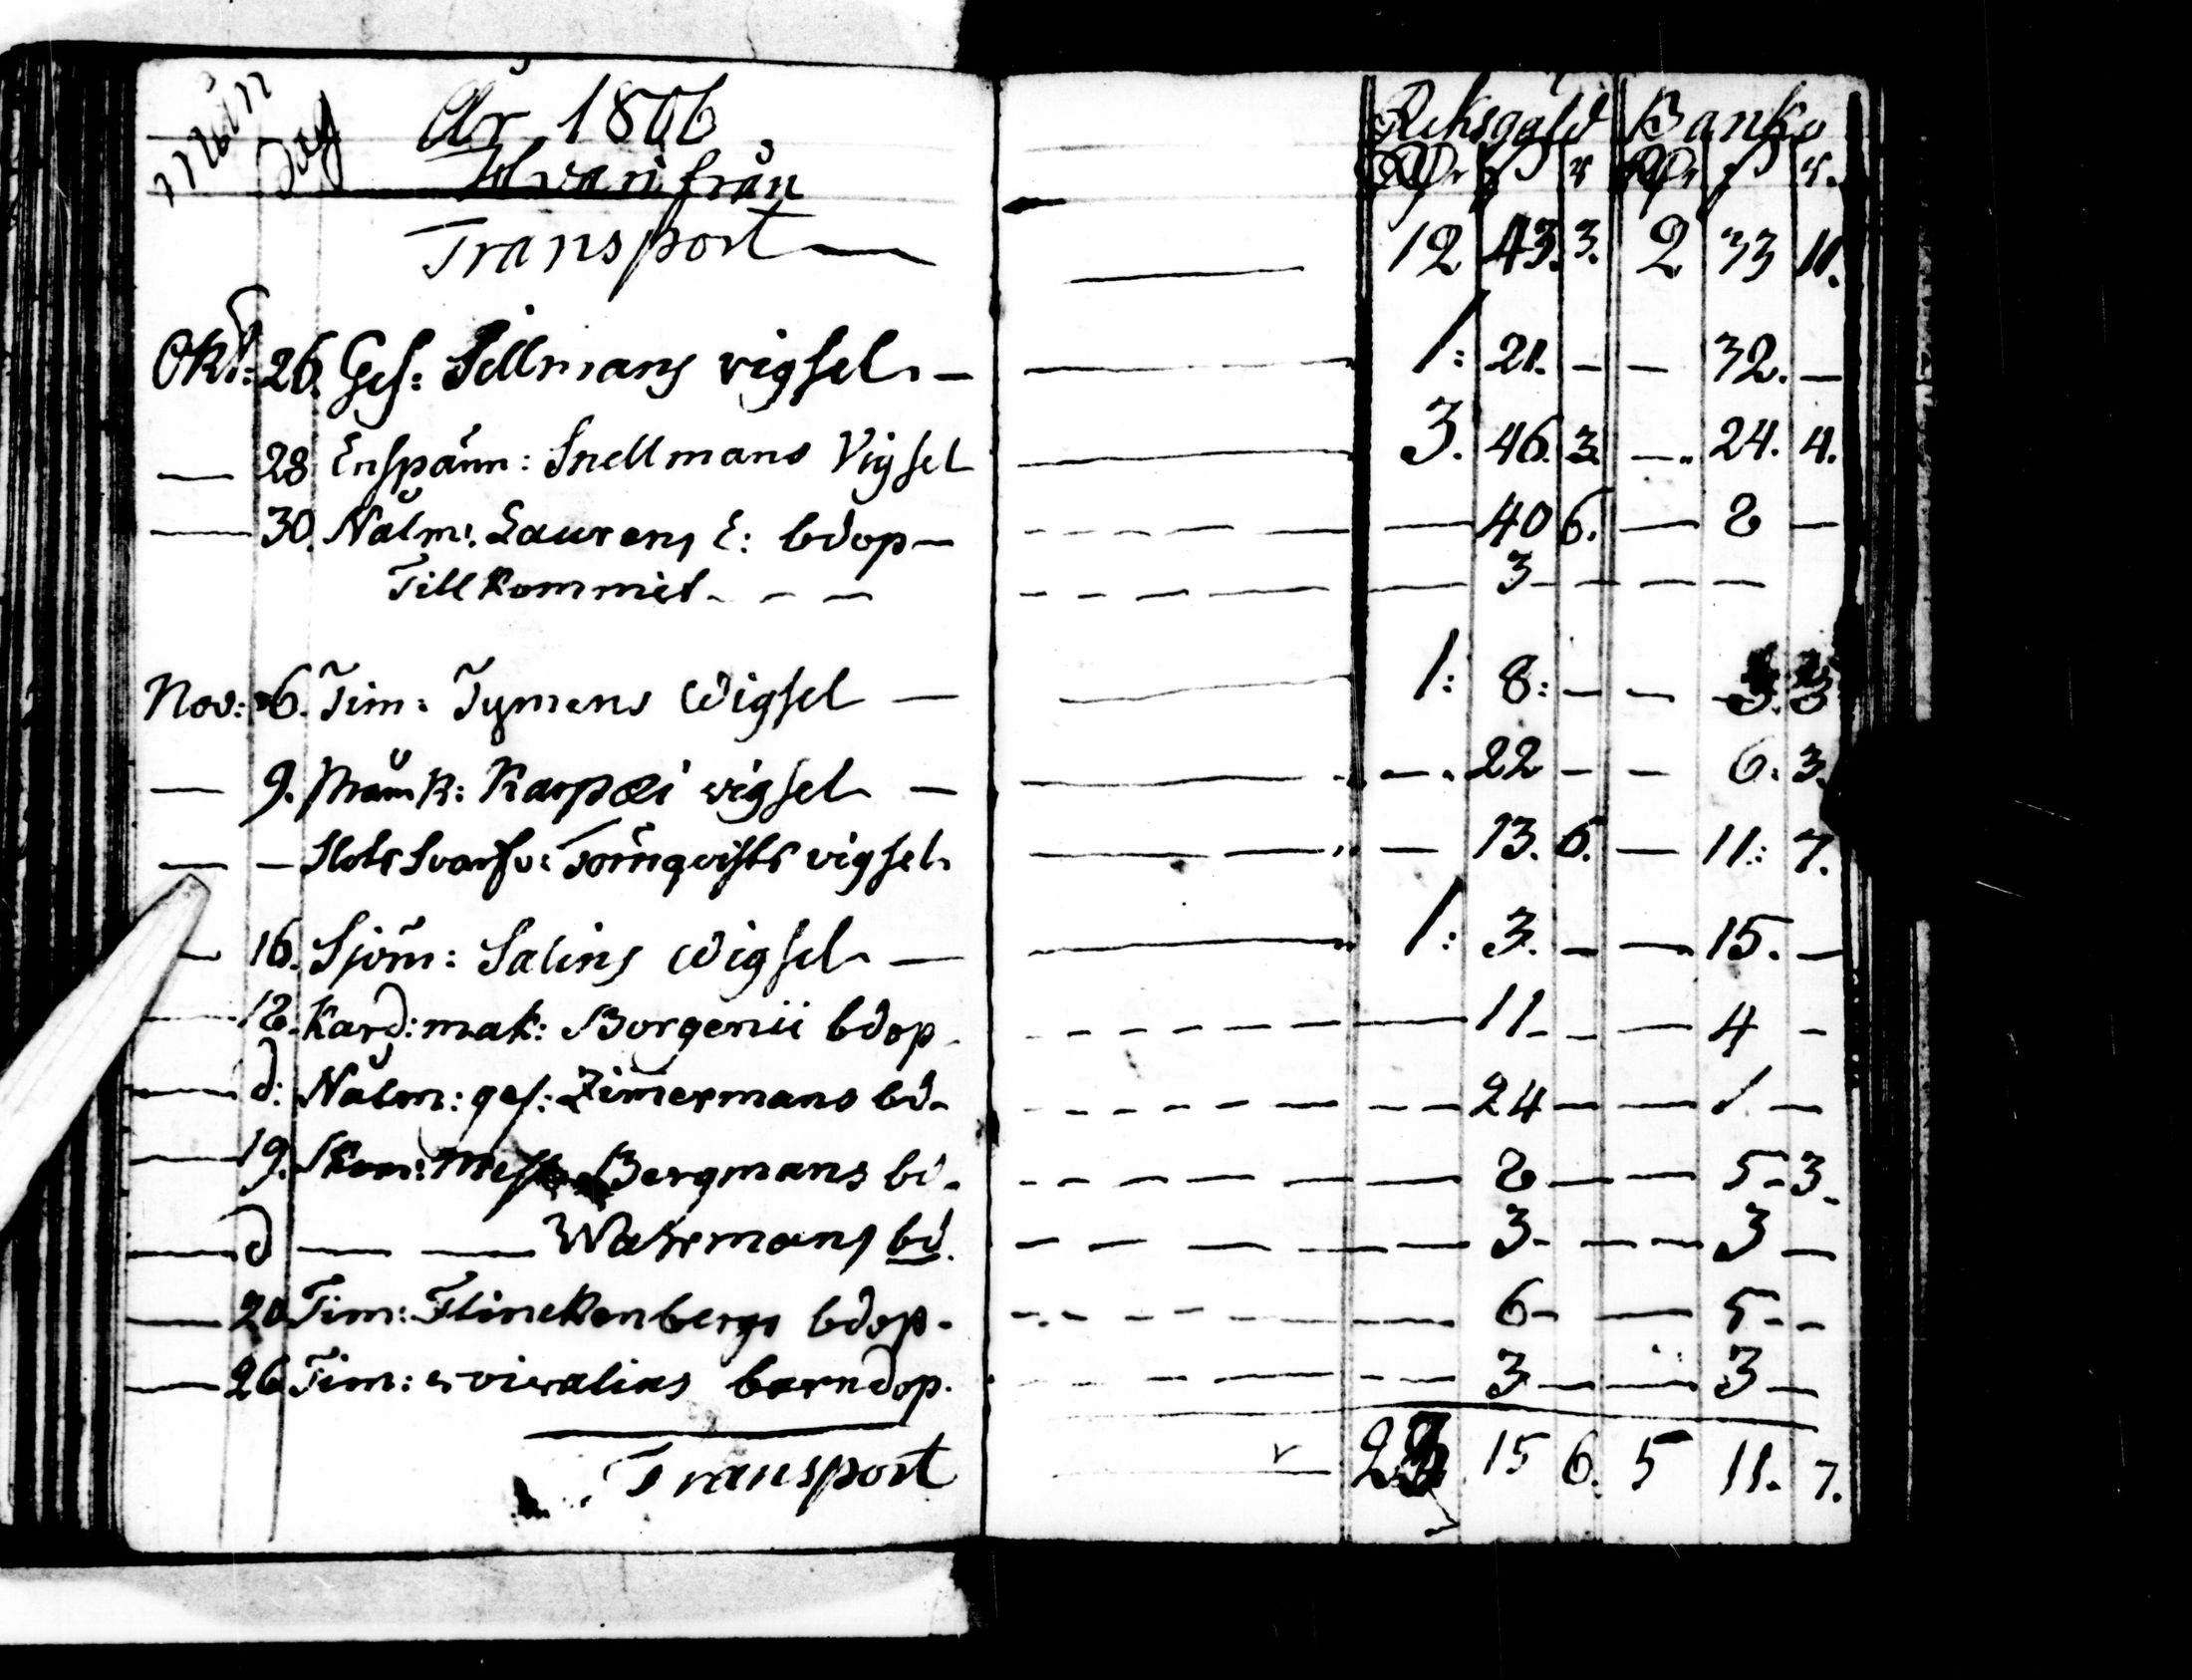 Mån Dag År 1806 Riksgäld Banko
Hvarifrån Rdr ß r Rdr ß r.
Transport — 12 43. 3. 2 33 11.
Okt: 26. Ges: Sellmans vigsel. — 1: 21. - — 32. —
— 28 Enspänn: Snellmans Vigsel — 3. 46. 3. —. 24. 4.
— 30. Nålm: Laurens E: bdop — — 40 6. — 8 —
Tillkommit - - - — 3 - — —
Nov: 6. Tim: Tymens Wigsel — 1: 8: - — 3. 3
— 9. Mån k: Karpæi vigsel — —. 22 - — 6: 3.
— - Törnqvists vigsel. — 13. 6. — 11: 7.
— 16. Sjöm: Salins Wigsel — 1: 3. - — 15. —
— 18. Kard: mak: Borgenii bdop. — 11 - - — 4 -
— d: Nålm: ges: Zimermans bd. — 24 — — 1. —
— 19. Skom: Bergmans bd. — 8 — — 5 - 3.
— d — — Wahrmans bd. — 3 - — — 3 —
— 20 Tim: Flinckenbergs bdop. 6 - — 5 - -
— 26 Tim: barndop. — 3 — — 3 —
Transport — 23 15 6. 5 11. 7.